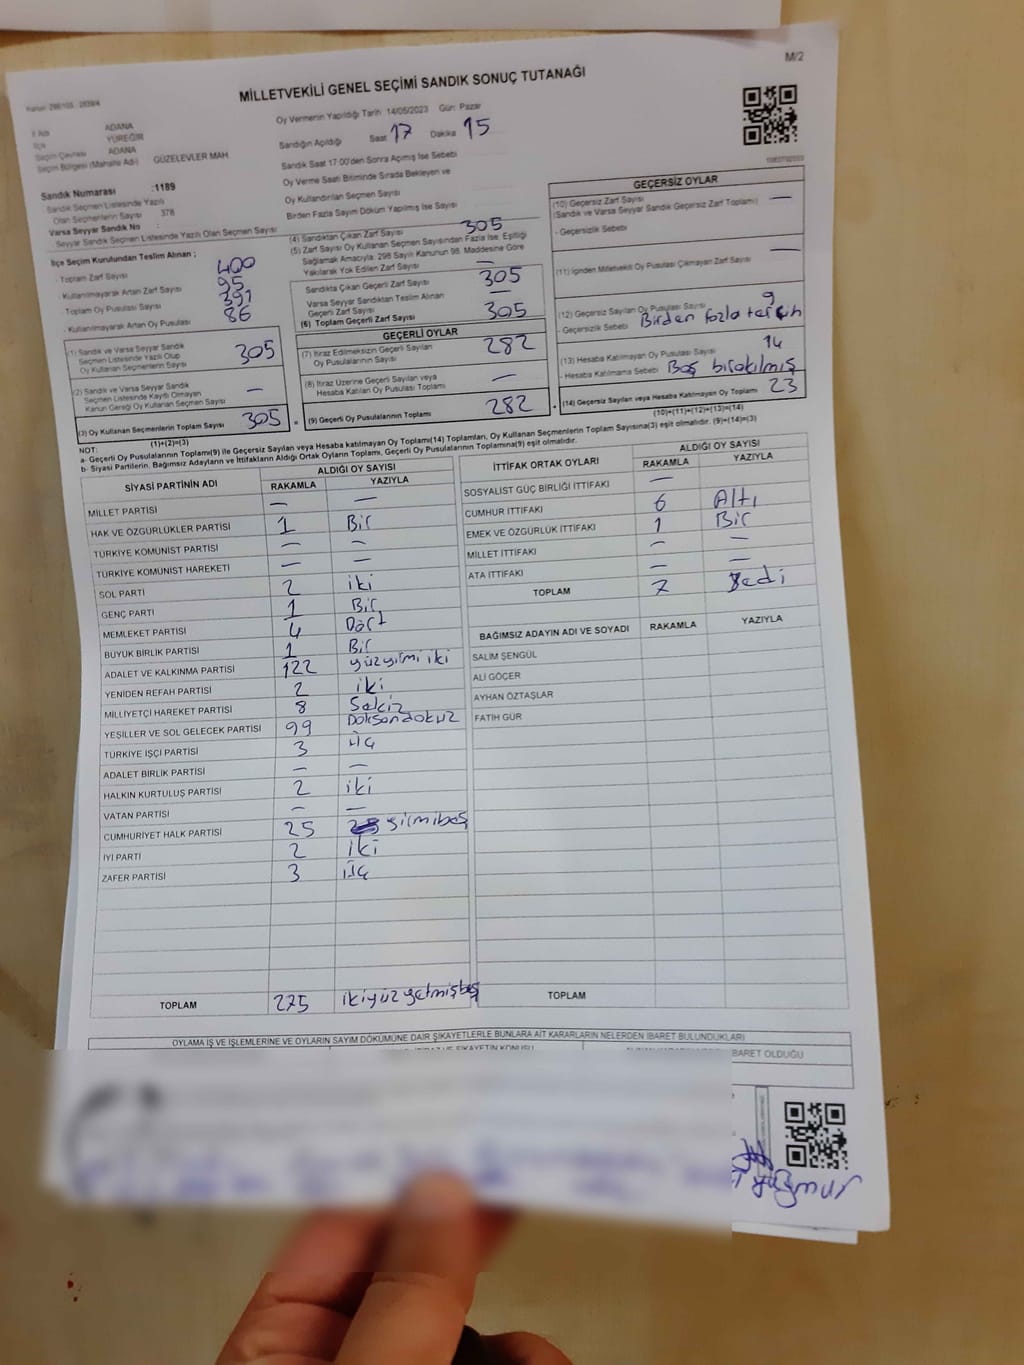 M/2
MİLLETVEKİLİ GENEL SEÇİMİ SANDIK SONUÇ TUTANAĞI
Oy Vermenin Yapıldığı Tarih 14/05/2023 Gün: Pazar
İl Adı ADANA
İlçe YÜREĞİR
Seçim Çevresi ADANA
Seçim Bölgesi (Mahalle Adı) GÜZELEVLER MAH
Sandık Numarası :1189
Sandık Seçmen Listesinde Yazılı
Olan Seçmenlerin Sayısı 378
Varsa Seyyar Sandık No :
Seyyar Sandık Seçmen Listesinde Yazılı Olan Seçmen Sayısı
Sandığın Açıldığı Saat 17 Dakika 15
Sandık Saat 17.00'den Sonra Açımış İse Sebebi
Oy Verme Saati Bitiminde Sırada Bekleyen ve
Oy Kullandırılan Seçmen Sayısı
Birden Fazla Sayım Döküm Yapılmış İse Sayısı
İlçe Seçim Kurulundan Teslim Alınan ;
- Toplam Zarf Sayısı 400
- Kullanılmayarak Artan Zarf Sayısı 95
- Toplam Oy Pusulası Sayısı 391
- Kullanılmayarak Artan Oy Pusulası 86
(1) Sandık ve Varsa Seyyar Sandık
Seçmen Listesinde Yazılı Olup
Oy Kullanan Seçmenlerin Sayısı 305
(2) Sandık ve Varsa Seyyar Sandık
Seçmen Listesinde Kayıtlı Olmayan
Kanun Gereği Oy Kullanan Seçmen Sayısı —
(3) Oy Kullanan Seçmenlerin Toplam Sayısı 305
(1)+(2)=(3)
(4) Sandıktan Çıkan Zarf Sayısı 305
(5) Zarf Sayısı Oy Kullanan Seçmen Sayısından Fazla İse, Eşitliği
Sağlamak Amacıyla; 298 Sayılı Kanunun 98. Maddesine Göre
Yakılarak Yok Edilen Zarf Sayısı —
Sandıkta Çıkan Geçerli Zarf Sayısı 305
Varsa Seyyar Sandıktan Teslim Alınan
Geçerli Zarf Sayısı —
(6) Toplam Geçerli Zarf Sayısı 305
GEÇERLİ OYLAR
(7) İtiraz Edilmeksizin Geçerli Sayılan
Oy Pusulalarının Sayısı 282
(8) İtiraz Üzerine Geçerli Sayılan veya
Hesaba Katılan Oy Pusulası Toplamı —
(9) Geçerli Oy Pusulalarının Toplamı 282
GEÇERSİZ OYLAR
(10) Geçersiz Zarf Sayısı —
(Sandık ve Varsa Seyyar Sandık Geçersiz Zarf Toplamı)
- Geçersizlik Sebebi
(11) İçinden Milletvekili Oy Pusulası Çıkmayan Zarf Sayısı —
(12) Geçersiz Sayılan Oy Pusulası Sayısı 9
- Geçersizlik Sebebi Birden fazla tercih
(13) Hesaba Katılmayan Oy Pusulası Sayısı 14
- Hesaba Katılmama Sebebi Boş bırakılmış
(14) Geçersiz Sayılan veya Hesaba Katılmayan Oy Toplamı 23
(10)+(11)+(12)+(13)=(14)
NOT:
a- Geçerli Oy Pusulalarının Toplamı(9) ile Geçersiz Sayılan veya Hesaba katılmayan Oy Toplamı(14) Toplamları, Oy Kullanan Seçmenlerin Toplam Sayısına(3) eşit olmalıdır. (9)+(14)=(3)
b- Siyasi Partilerin, Bağımsız Adayların ve İttifakların Aldığı Ortak Oyların Toplamı, Geçerli Oy Pusulalarının Toplamına(9) eşit olmalıdır.
SİYASİ PARTİNİN ADI ALDIĞI OY SAYISI
RAKAMLA YAZIYLA
MİLLET PARTİSİ — —
HAK VE ÖZGÜRLÜKLER PARTİSİ 1 Bir
TÜRKİYE KOMÜNİST PARTİSİ — —
TÜRKİYE KOMÜNİST HAREKETİ — —
SOL PARTİ 2 iki
GENÇ PARTİ 1 Bir
MEMLEKET PARTİSİ 4 Dört
BÜYÜK BİRLİK PARTİSİ 1 Bir
ADALET VE KALKINMA PARTİSİ 122 yüzyirmi iki
YENİDEN REFAH PARTİSİ 2 iki
MİLLİYETÇİ HAREKET PARTİSİ 8 Sekiz
YEŞİLLER VE SOL GELECEK PARTİSİ 99 Doksandokuz
TÜRKİYE İŞÇİ PARTİSİ 3 üç
ADALET BİRLİK PARTİSİ — —
HALKIN KURTULUŞ PARTİSİ 2 iki
VATAN PARTİSİ — —
CUMHURİYET HALK PARTİSİ 25 yirmibeş
İYİ PARTİ 2 iki
ZAFER PARTİSİ 3 üç
TOPLAM 275 ikiyüzyetmişbeş
İTTİFAK ORTAK OYLARI ALDIĞI OY SAYISI
RAKAMLA YAZIYLA
SOSYALİST GÜÇ BİRLİĞİ İTTİFAKI —
CUMHUR İTTİFAKI 6 Altı
EMEK VE ÖZGÜRLÜK İTTİFAKI 1 Bir
MİLLET İTTİFAKI — —
ATA İTTİFAKI — —
TOPLAM 7 Yedi
BAĞIMSIZ ADAYIN ADI VE SOYADI RAKAMLA YAZIYLA
SALİM ŞENGÜL
ALİ GÖÇER
AYHAN ÖZTAŞLAR
FATİH GÜR
TOPLAM
OYLAMA İŞ VE İŞLEMLERİNE VE OYLARIN SAYIM DÖKÜMÜNE DAİR ŞİKAYETLERLE BUNLARA AİT KARARLARIN NELERDEN İBARET BULUNDUKLARI
İBARET OLDUĞU